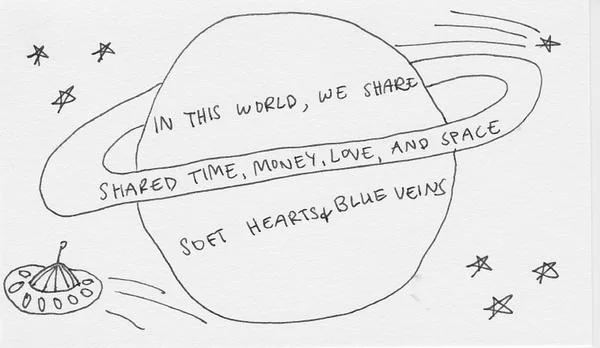 IN THIS WORLD, WE SHARE
SHARED TIME, MONEY, LOVE, AND SPACE
SOFT HEARTS & BLUE VEINS